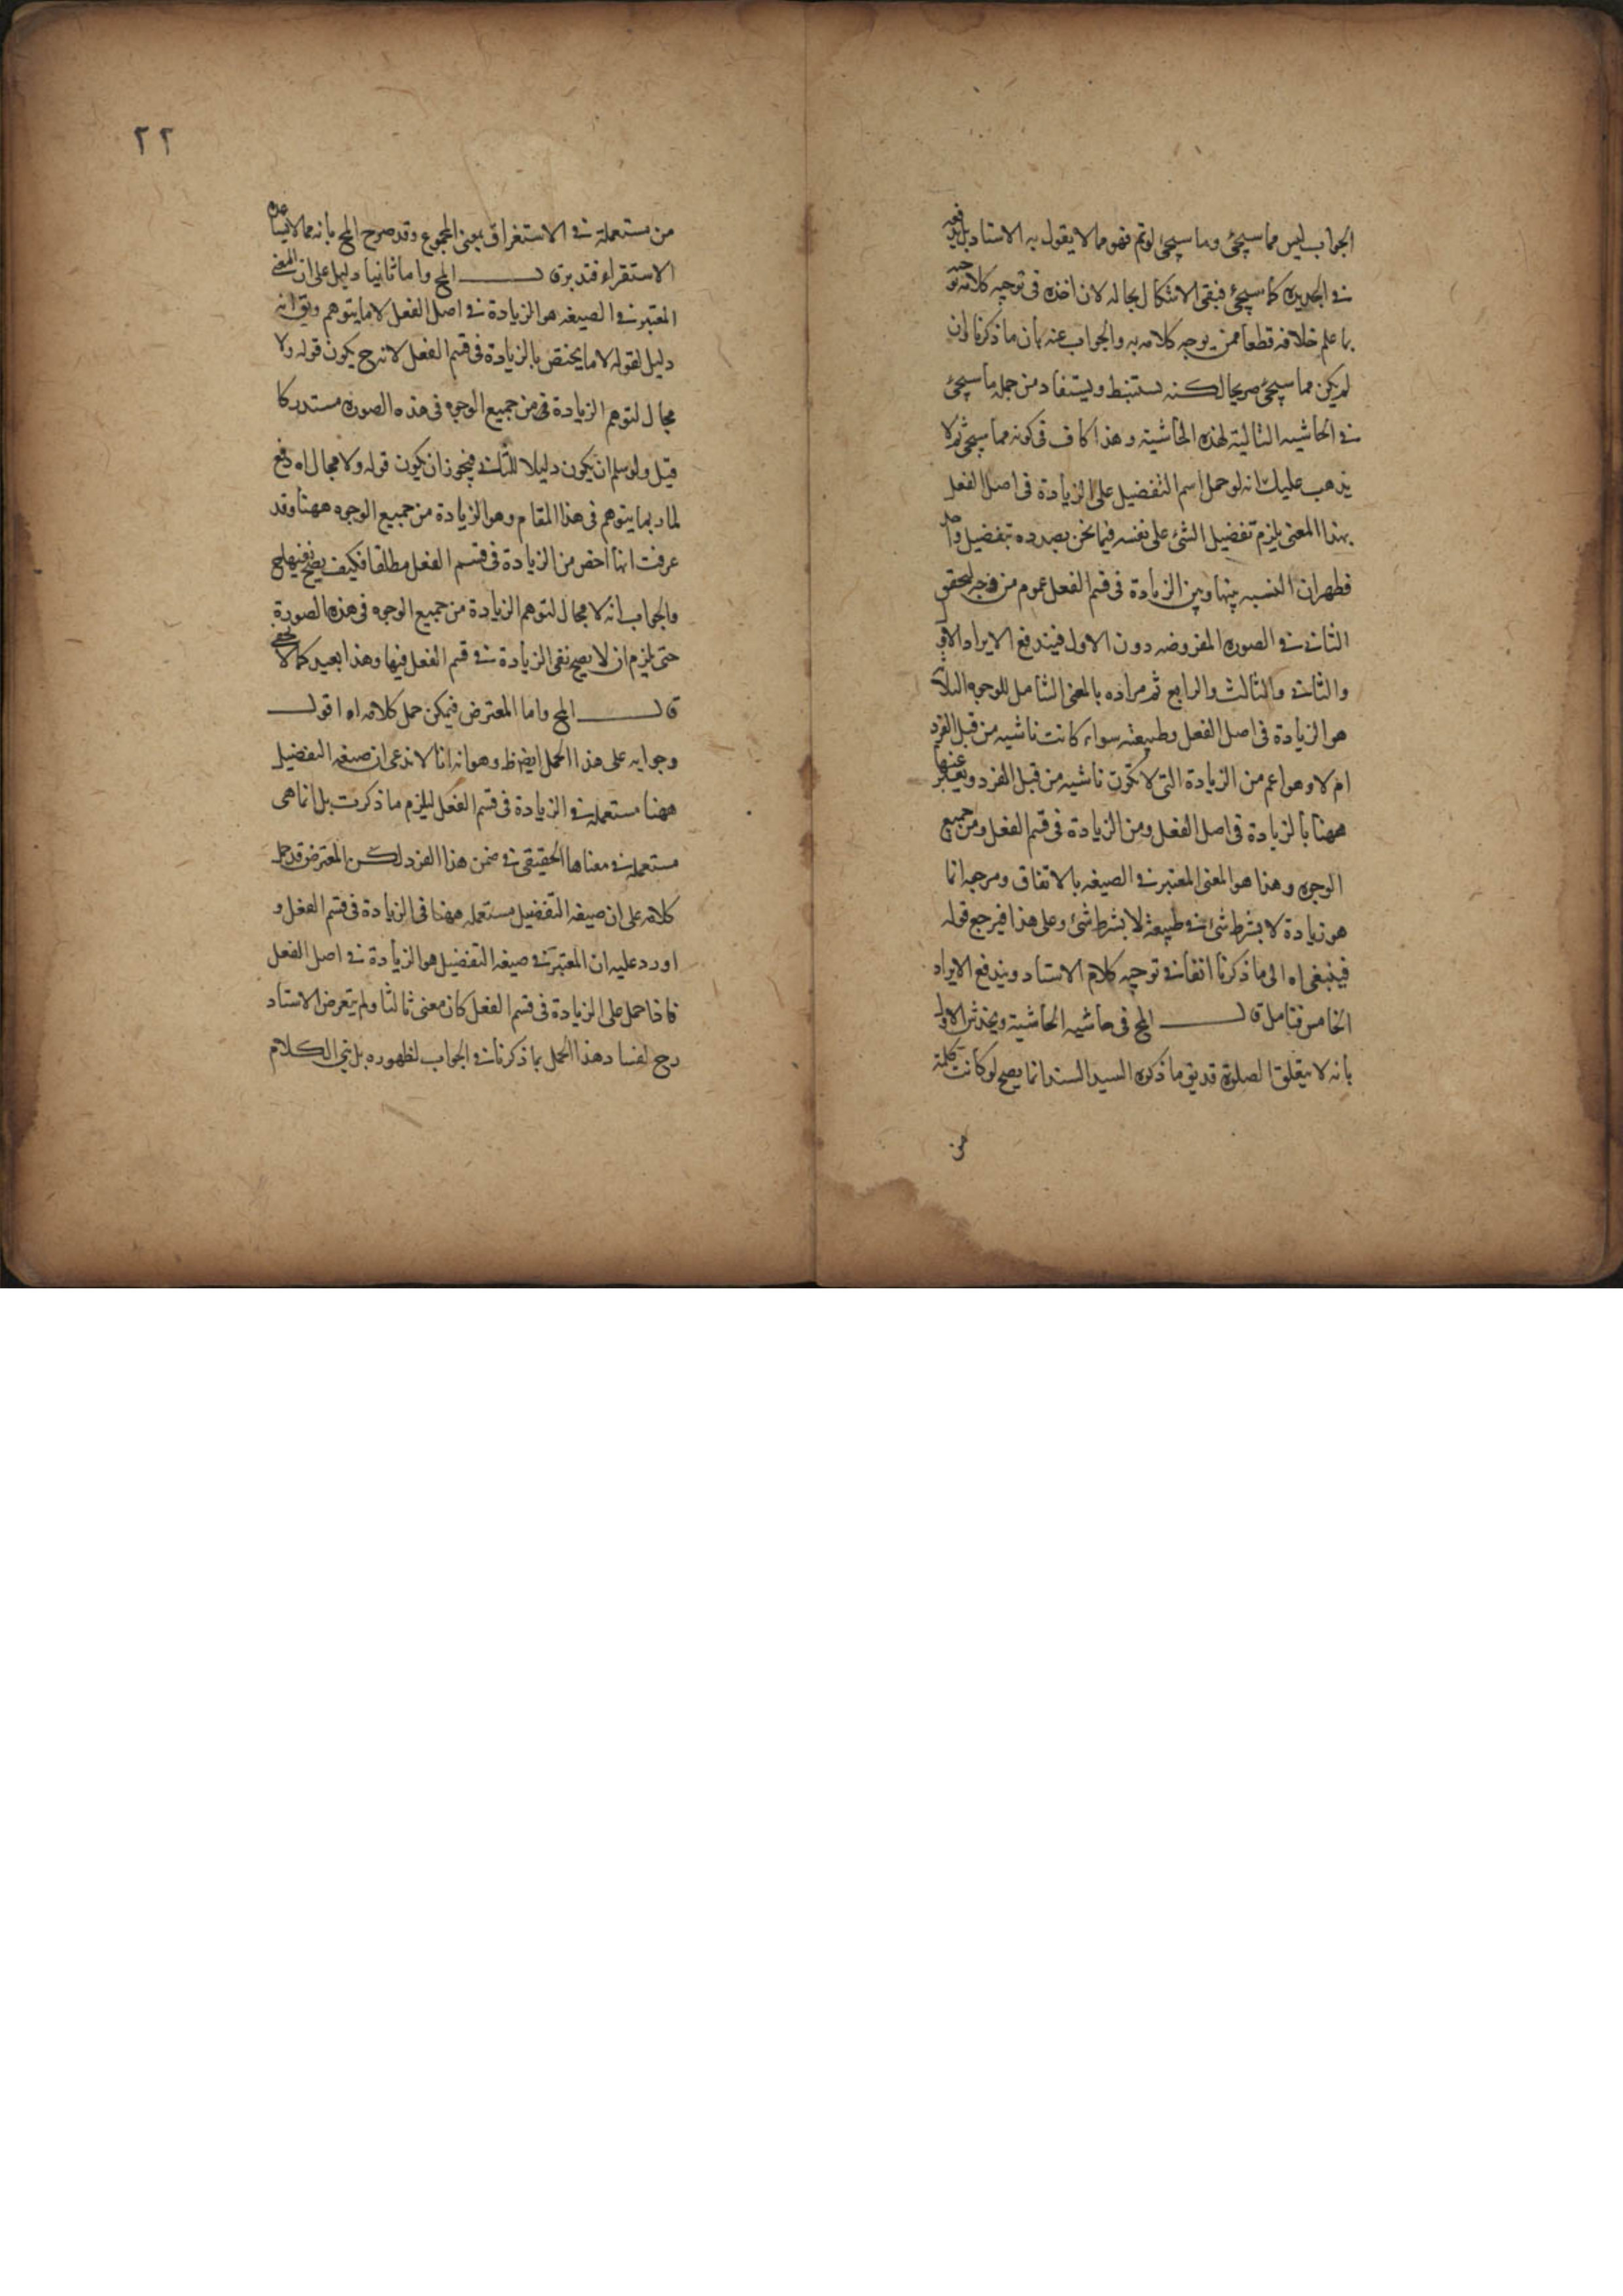 الجواب ليس مما سيجئ وما سيجئ لو تم فهو مما لا يقول به الاستاد بل
في الجديدة كما سيجئ فبقى الاشكال بحاله لان اخذه في توجيه كلامه
بما علم خلافه قطعا ممن يوجه كلامه به والجواب عنه بان ما ذكرنا وان
لم يكن مما سيجئ صريحا لكنه يستنبط ويستفاد من جملة ما سيجئ
في الحاشيه التالية لهذه الحاشية وهذا كاف في كونه مما سيجئ ثم لا
يذهب عليك انه لو حمل اسم التفضيل على الزيادة في اصل الفعل
بهذا المعنى يلزم تفضيل الشئ على نفسه فيما نحن بصدده بتفضيل واحد
فظهر ان النسبه بينها وبين الزيادة في قسم الفعل عموم من وجه لتحقق
الثاني في الصورة المفروضه دون الاول فيندفع الايراد الاول
والثاني والثالث والرابع ثم مراده بالمعنى الشامل للوجوه الثلاثة
هو الزيادة في اصل الفعل وطبيعته سواء كانت ناشيه من قبل الفرد
ام لا وهو اعم من الزيادة التي لا تكون ناشيه من قبل الفرد ويعبر عنها
ههنا بالزيادة في اصل الفعل ومن الزيادة في قسم الفعل ومن جميع
الوجوه وهذا هو المعنى المعتبر في الصيغه بالاتفاق ومرجعه انما
هو زيادة لا بشرط شئ في طبيعة لا بشرط شئ وعلى هذا فيرجع قوله
فينبغي اه الى ما ذكرنا انفا في توجيه كلام الاستاد ويندفع الايراد
الخامس فتامل قال المح في حاشيه الحاشية ويخدش الاول
بانه لا يتعلق الصلوة قد يق ما ذكره السيد السند انما يصح لو كانت كلمة
من
٢٢
من مستعملة في الاستغراق بمعنى المجموع وقد صرح المح بانه مما لا يساعده
الاستقراء فتدبر قال المح واما ثانيا دليل على ان المعنى
المعتبر في الصيغه هو الزيادة في اصل الفعل لا ما يتوهم ويق انه
دليل لقوله لا ما يختص بالزيادة في قسم الفعل لانه ح يكون قوله ولا
مجال لتوهم الزيادة في من جميع الوجوه في هذه الصورة مستدركا
قيل ولو سلم ان يكون دليلا للثاني فيجوز ان يكون قوله ولا مجال اه دفع
لما ربما يتوهم في هذا المقام وهو الزيادة من جميع الوجوه ههنا وقد
عرفت انها اخص من الزيادة في قسم الفعل مطلقا فكيف يصح نفيها ح
والجواب انه لا مجال لتوهم الزيادة من جميع الوجوه في هذه الصورة
حتى يلزم ان لا يصح نفي الزيادة في قسم الفعل فيها وهذا بعيد كما لا يخفى
قال المح واما المعترض فيمكن حمل كلامه اه اقول
وجوابه على هذا الحمل ايضا ظ وهو انه انا لا ندعي ان صيغه التفضيل
ههنا مستعملة في الزيادة في قسم الفعل ليلزم ما ذكرت بل انما هي
مستعملة في معناها الحقيقي في ضمن هذا الفرد لكن المعترض قد حمل
كلامه على ان صيغه التفضيل مستعمله ههنا في الزيادة في قسم الفعل و
اورد عليه ان المعتبر في صيغه التفضيل هو الزيادة في اصل الفعل
فاذا حمل على الزيادة في قسم الفعل كان معنى ثالثا ولم يتعرض الاستاد
رح لفساد هذا الحمل بما ذكرنا في الجواب لظهوره بل بنى الكلام